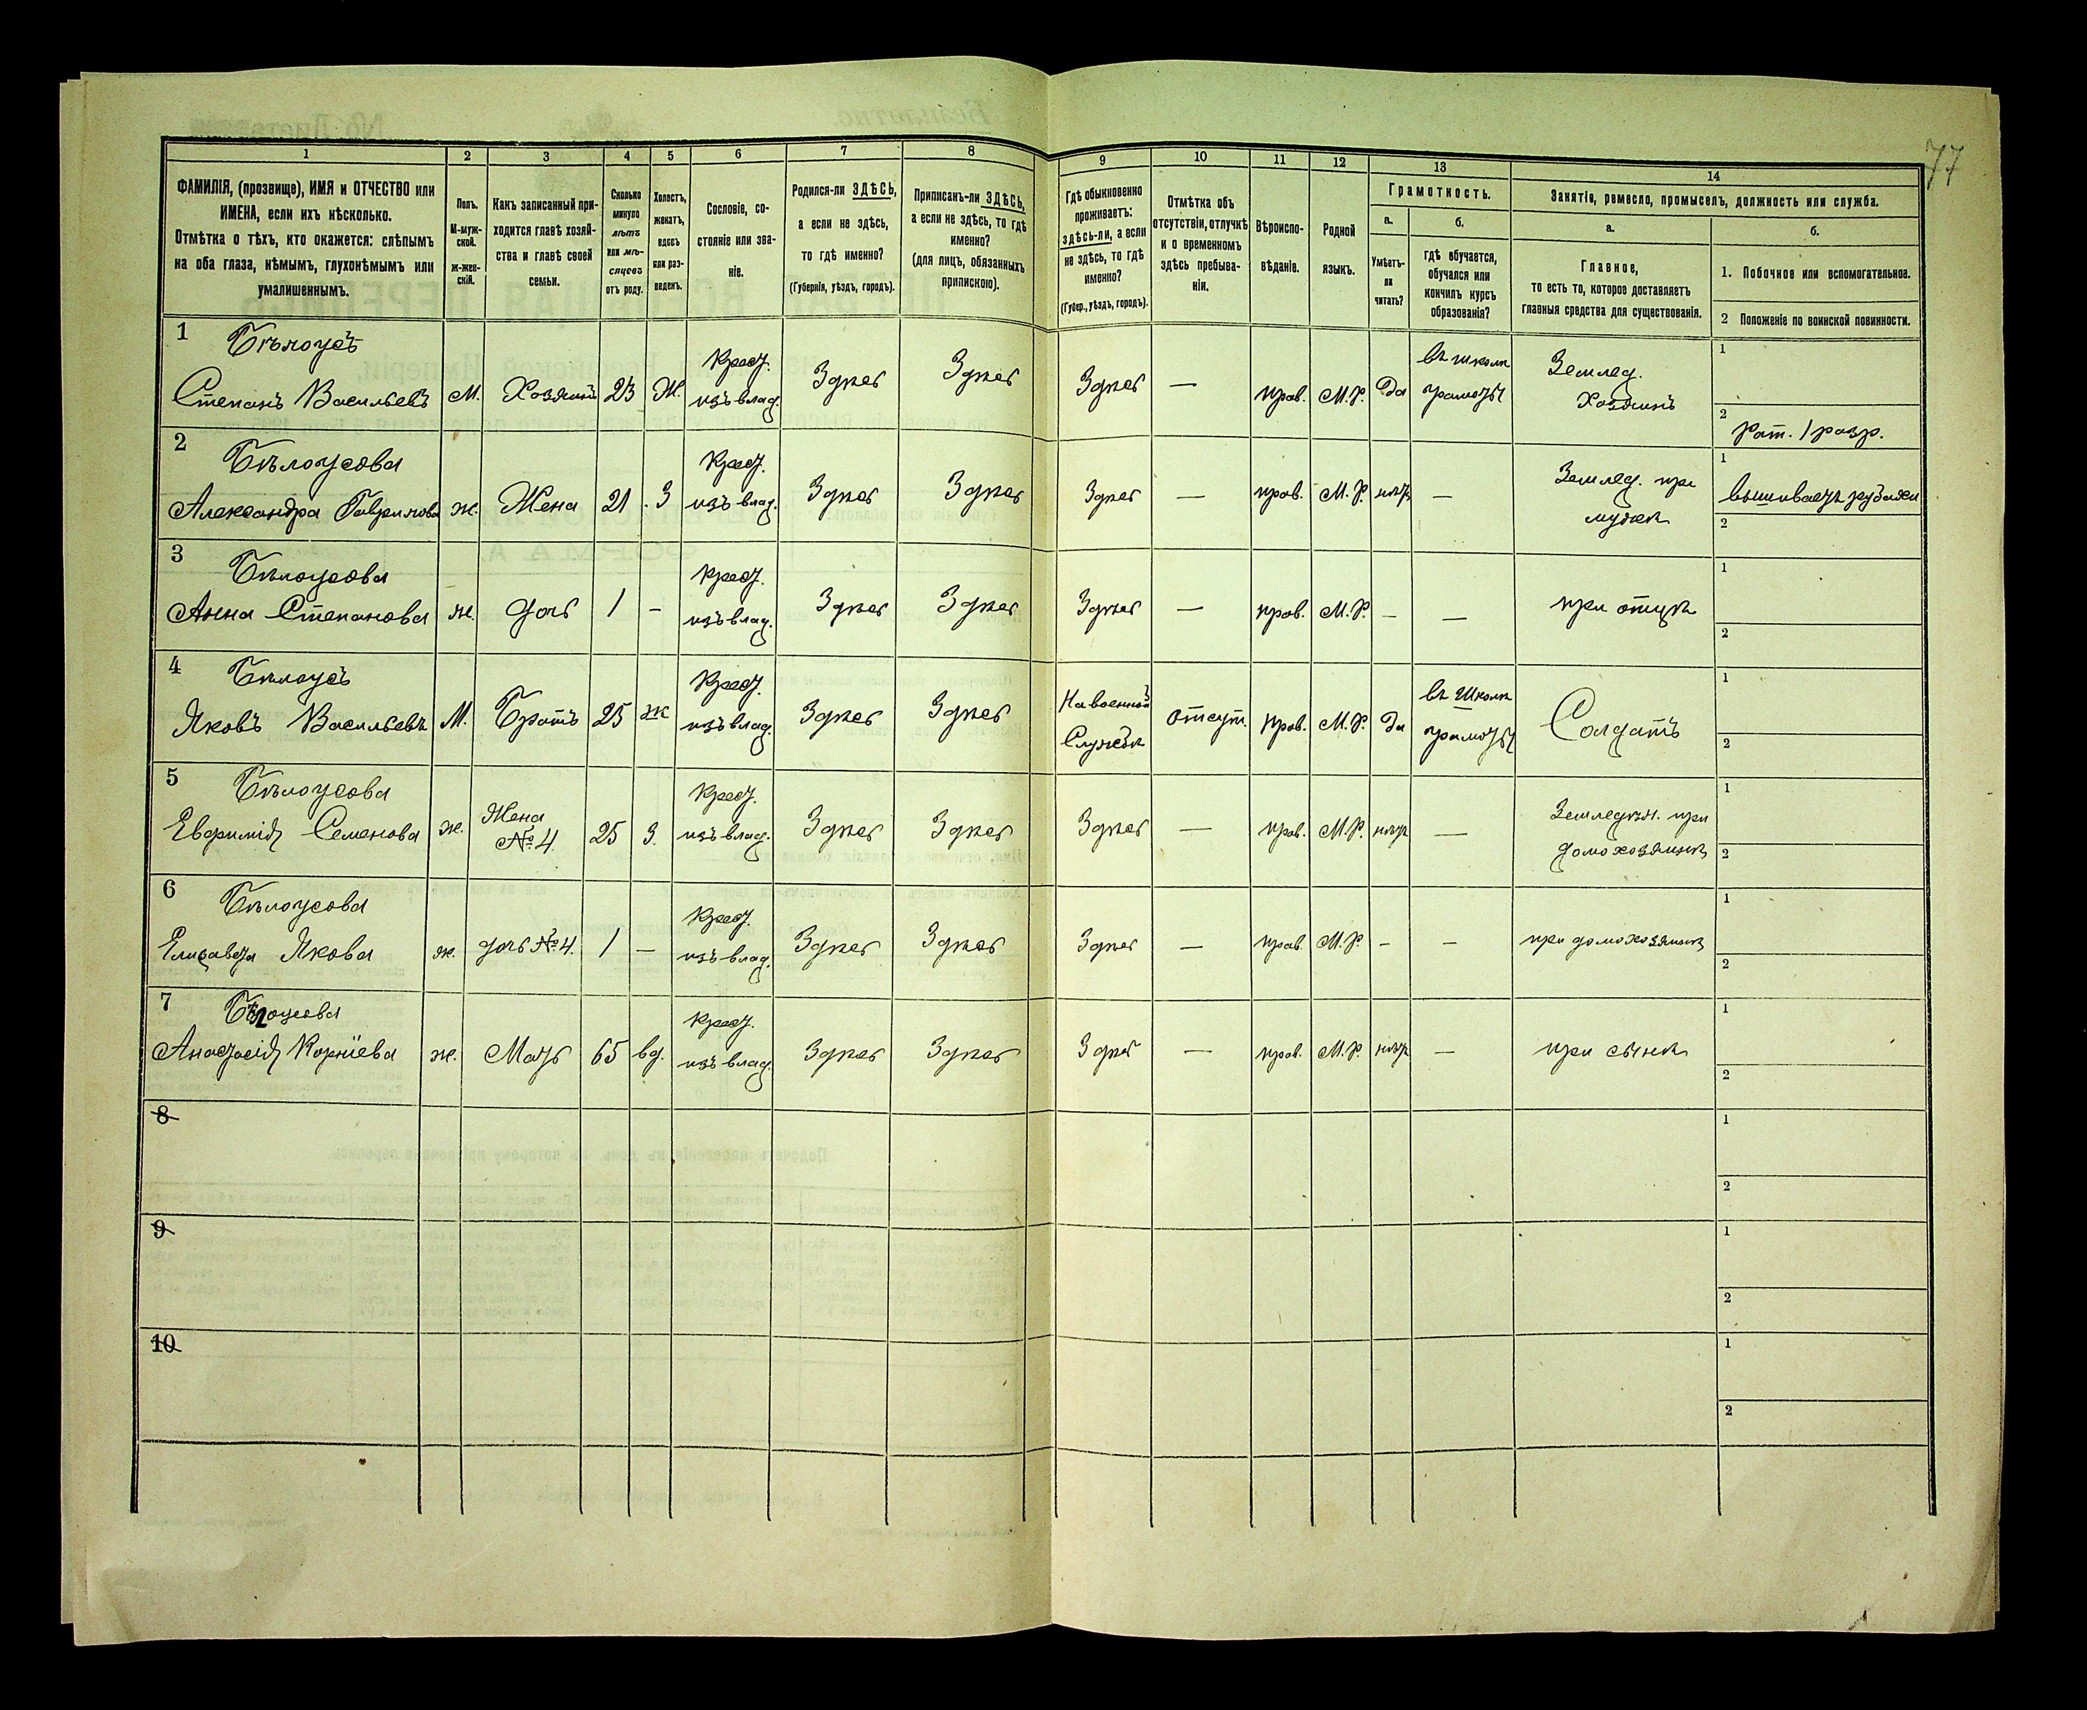 77
1
2
3
4
5
6
7
8
9
10
11
12
13
14
ФАМИЛІЯ, (прозвище), ИМЯ и ОТЧЕСТВО или
ИМЕНА, если ихъ нѣсколько.
Отмѣтка о тѣхъ, кто окажется: слѣпымъ
на оба глаза, нѣмымъ, глухонѣмымъ или
умалишеннымъ.
Полъ.
М-муж-
ской.
ж-жен-
скій.
Какъ записанный при-
ходится главѣ хозяй-
ства и главѣ своей
семьи.
Сколько
минуло
лѣтъ
или мѣ-
сяцевъ
отъ роду.
Холостъ,
женатъ,
вдовъ
или раз-
веденъ.
Сословіе, со-
стояніе или зва-
ніе.
Родился-ли ЗДѢСЬ,
а если не здѣсь,
то гдѣ именно?
(Губернія, уѣздъ, городъ).
Приписанъ-ли ЗДѢСЬ,
а если не здѣсь, то гдѣ
именно?
(для лицъ, обязанныхъ
припискою).
Гдѣ обыкновенно
проживаетъ:
здѣсь-ли, а если
не здѣсь, то гдѣ
именно?
(Губер., уѣздъ, городъ).
Отмѣтка объ
отсутствіи, отлучкѣ
и о временномъ
здѣсь пребыва-
ніи.
Вѣроиспо-
вѣданіе.
Родной
языкъ.
Грамотность.
а.
Умѣетъ-
ли
читать?
б.
гдѣ обучается,
обучался или
кончилъ курсъ
образованія?
Занятіе, ремесло, промыселъ, должность или служба.
а.
Главное,
то есть то, которое доставляетъ
главныя средства для существованія.
б.
1. Побочное или вспомогательное.
2 Положеніе по воинской повинности.
1 Бѣлоусъ
Степанъ Васильевъ м. Хозяинъ 23 Ж. Крест. изъ влад. Здѣсь Здѣсь Здѣсь — прав. М.Р. Да въ школѣ грамоты Землед. Хозяинъ
1
2 Рат. 1 разр.
2 Бѣлоусова
Александра Гаврилова ж. Жена 21 З Крест. изъ влад. Здѣсь Здѣсь Здѣсь — прав. М.Р. нѣтъ — Землед. при мужѣ
1 вышиваетъ рубахи
2
3 Бѣлоусова
Анна Степанова ж. дочь 1 — Крест. изъ влад. Здѣсь Здѣсь Здѣсь — прав. М.Р. — — при отцѣ
1
2
4 Бѣлоусъ
Яковъ Васильевъ М. Братъ 25 ж Крест. изъ влад. Здѣсь Здѣсь На военной Службѣ отсут. прав. М.Р. Да въ школѣ грамоты Солдатъ
1
2
5 Бѣлоусова
Евфимія Семенова ж. Жена №4 25 З. Крест. изъ влад. Здѣсь Здѣсь Здѣсь — прав. М.Р. нѣтъ — Земледѣл. при домохозяинѣ
1
2
6 Бѣлоусова
Елизавета Якова ж. дочь №4. 1 — Крест. изъ влад. Здѣсь Здѣсь Здѣсь — прав. М.Р. — — при домохозяинѣ
1
2
7 Бѣлоусова
Анастасія Корніева ж. Мать 65 вд. Крест. изъ влад. Здѣсь Здѣсь Здѣсь — прав. М.Р. нѣтъ — при сынѣ
1
2
8
1
2
9
1
2
10
1
2